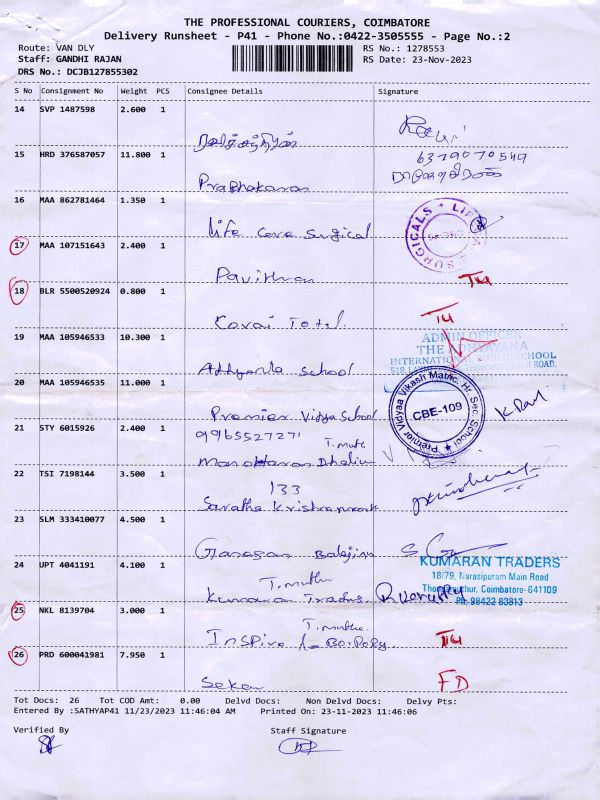 THE PROFESSIONAL COURIERS, COIMBATORE
Delivery Runsheet - P41 - Phone No.:0422-3505555 - Page No.:2
Route: VAN DLY RS No.: 1278553
Staff: GANDHI RAJAN RS Date: 23-Nov-2023
DRS No.: DCJB127855302
S No Consignment No Weight PCS Consignee Details Signature
14 SVP 1487598 2.600 1
15 HRD 376587057 11.800 1 6379070549
Prabhakaran
16 MAA 862781464 1.350 1
life care surgical
17 MAA 107151643 2.400 1
Pavithran
18 BLR 5500520924 0.800 1
Kovai Total
19 MAA 105946533 10.300 1 ADMIN OFFICER
THE ADHYAYANA
INTERNATIONAL PUBLIC SCHOOL
School
20 MAA 105946535 11.000 1
Premier Vidyaa Vikash Matric. Hr. Sec. School
CBE-109
Premier Vidya School
21 STY 6015926 2.400 1 9965527271
T.muth
22 TSI 7198144 3.500 1 133
23 SLM 333410077 4.500 1
Ganesan Balaji
24 UPT 4041191 4.100 1 KUMARAN TRADERS
18/79, Narasipuram Main Road
Thondamuthur, Coimbatore-641109
Ph: 98422 83813
T.muthu
Kumaran Traders
25 NKL 8139704 3.000 1
T.muthu
Inspire
26 PRD 600041981 7.950 1
Sekar FD
Tot Docs: 26 Tot COD Amt: 0.00 Delvd Docs: Non Delvd Docs: Delvy Pts:
Entered By :SATHYAP41 11/23/2023 11:46:04 AM Printed On: 23-11-2023 11:46:06
Verified By Staff Signature